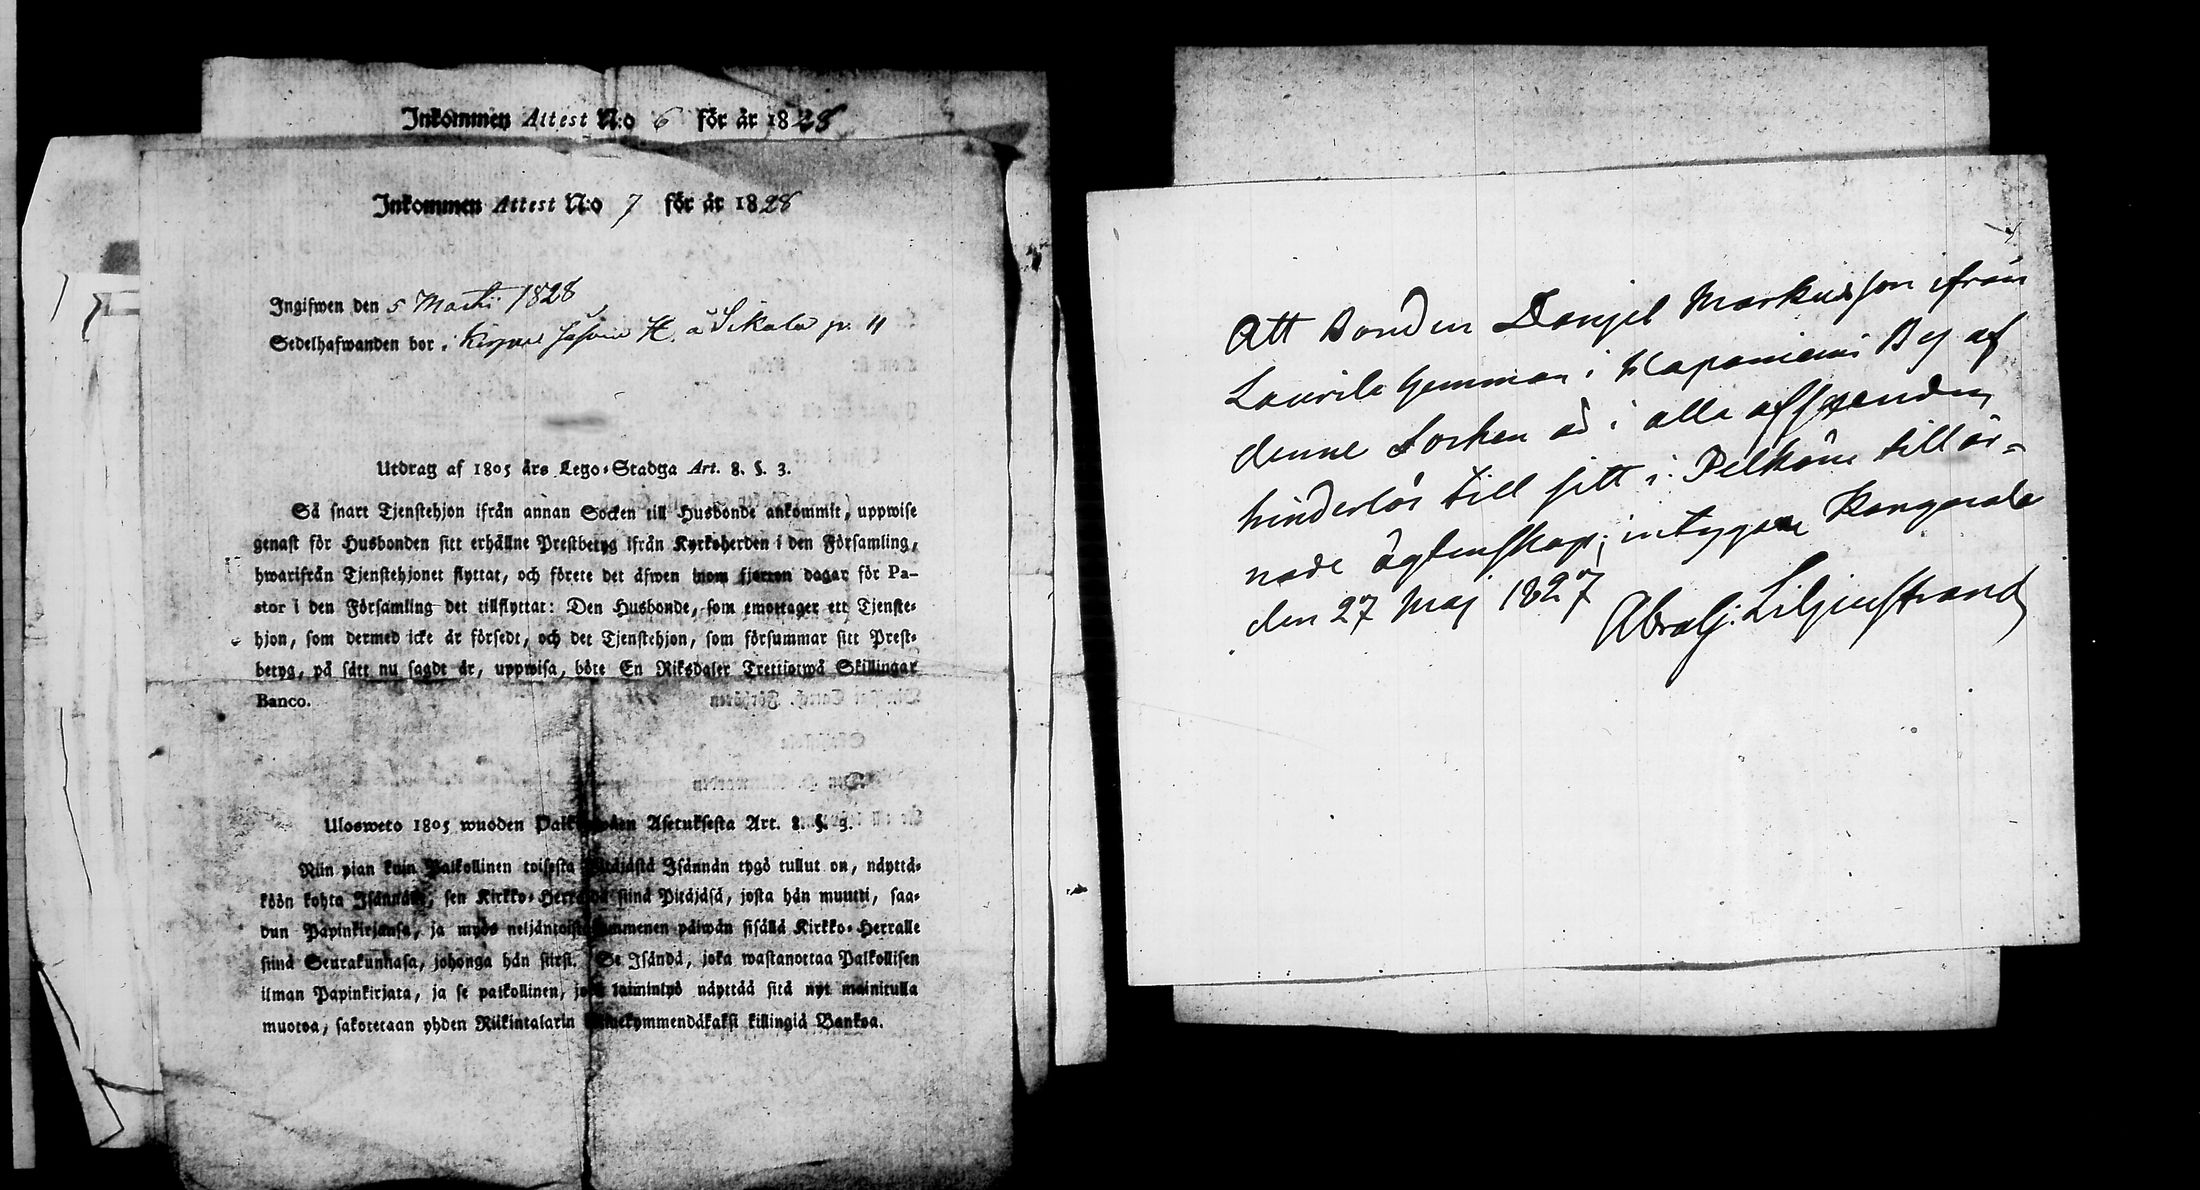 Inkommen Attest N:o 6 för år 1828
Inkommen Attest N:o 7 för år 1828
Ingifwen den 5 Martii 1828
Sedelhafwanden bor i å Sikala p. 11
Utdrag af 1805 års Lego-Stadga Art. 8. §. 3.
Så snart Tjenstehjon ifrån annan Socken till Husbonde ankommit, uppwise
genast för Husbonden sitt erhållne Prestbetyg ifrån Kyrkoherden i den Församling,
hwarifrån Tjenstehjonet flyttat, och förete det äfwen inom fjorton dagar för Pa-
stor i den Församling det tillflyttat: Den Husbonde, som emottager ett Tjenste-
hjon, som dermed icke är försedt, och det Tjenstehjon, som försummar sitt Prest-
betyg, på sätt nu sagdt är, uppwisa, böte En Riksdaler Trettiotwå Skillingar
Banco.
Ulosweto 1805 wuoden Asetuksesta Art. 8. §. 3.
Niin pian kuin Palkollinen toisesta Pitäjästä Isännän tygö tullut on, näyttä-
köön kohta Isännälle, sen Kirkko-Herralda siinä Pitäjäsä, josta hän muutti, saa-
dun Papinkirjansa, ja myös neljäntoistakymmenen päiwän sisällä Kirkko-Herralle
siinä Seurakunnasa, johonga hän siirsi. Se Isändä, joka wastanottaa Palkollisen
ilman Papinkirjata, ja se palkollinen, joka laiminlyö näyttää sitä nyt mainitulla
muotoa, sakotetaan yhden Riikintalarin killingiä Bankoa.
Att Bonden Danjel Markusson ifrån
Laurila hemman i Haponiemi By af
denne Socken är i alla afseenden
hinderlös till sitt i Pelkäne tillär-
nade ägtenskap; intygar Kangasala
den 27 Maj 1827 Abrah: Liljenstrand